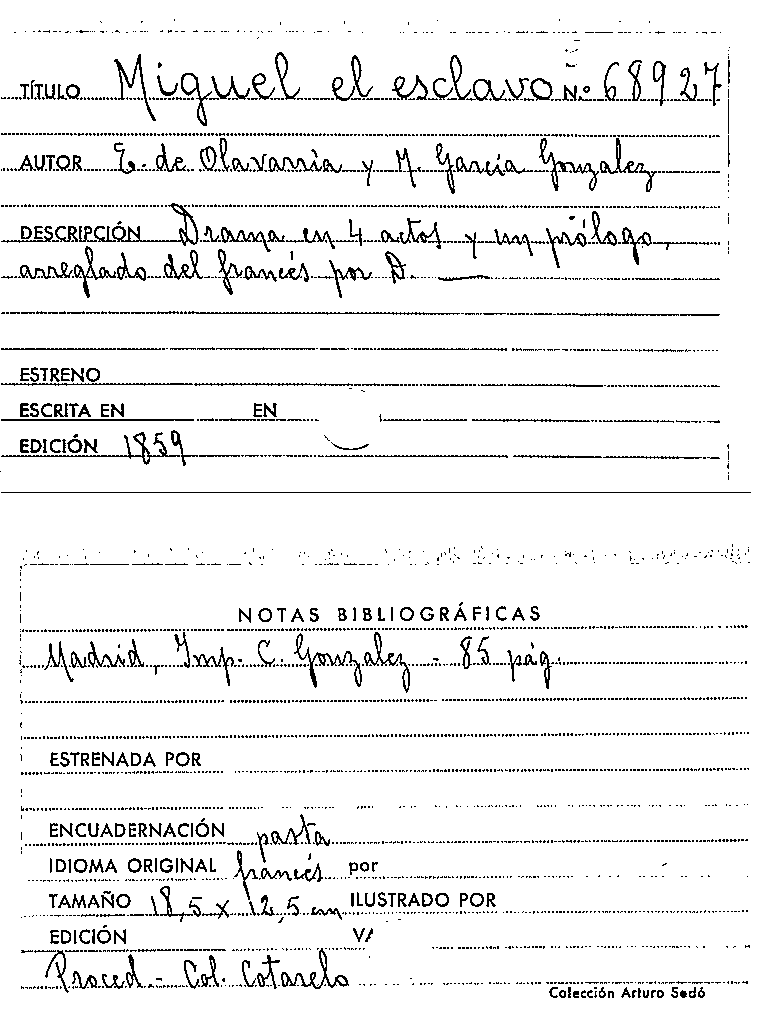 TÍTULO Miguel el esclavo N.º 68927
AUTOR E. de Olavarria y M. García Gonzalez
DESCRIPCIÓN Drama en 4 actos y un prólogo,
arreglado del francés por D. —
ESTRENO
ESCRITA EN EN
EDICIÓN 1859
NOTAS BIBLIOGRÁFICAS
Madrid, Imp. C. Gonzalez - 85 pág.
ESTRENADA POR
ENCUADERNACIÓN pasta
IDIOMA ORIGINAL francés por
TAMAÑO 18,5 x 12,5 cm ILUSTRADO POR
EDICIÓN
Proced.- Col. Cotarelo
Colección Arturo Sedó